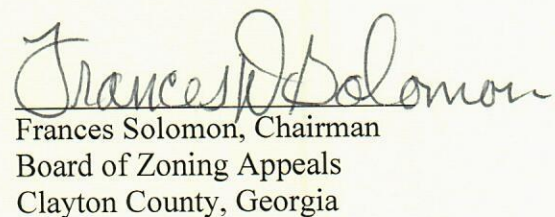 Frances D Solomon
Frances Solomon, Chairman
Board of Zoning Appeals
Clayton County, Georgia